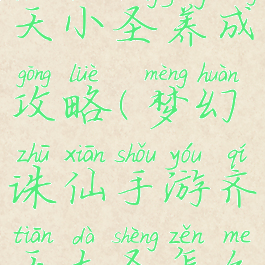 天小圣养成
gōng lüè mèng huàn
攻略(梦幻
zhū xiān shǒu yóu qí
诛仙手游齐
tiān dà shèng zěn me
天大圣怎么